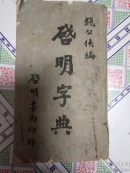 錢公俠編
啓明字典
啓明書局印行